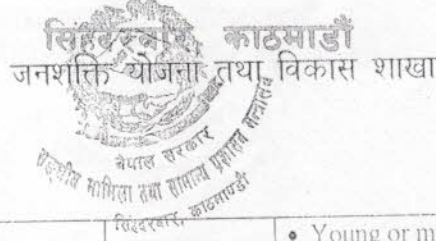 सिंहदरवार, काठमाडौं
जनशक्ति योजना तथा विकास शाखा
नेपाल सरकार
सङ्घीय मामिला तथा सामान्य प्रशासन मन्त्रालय
सिंहदरवार, काठमाण्डौ
• Young or m